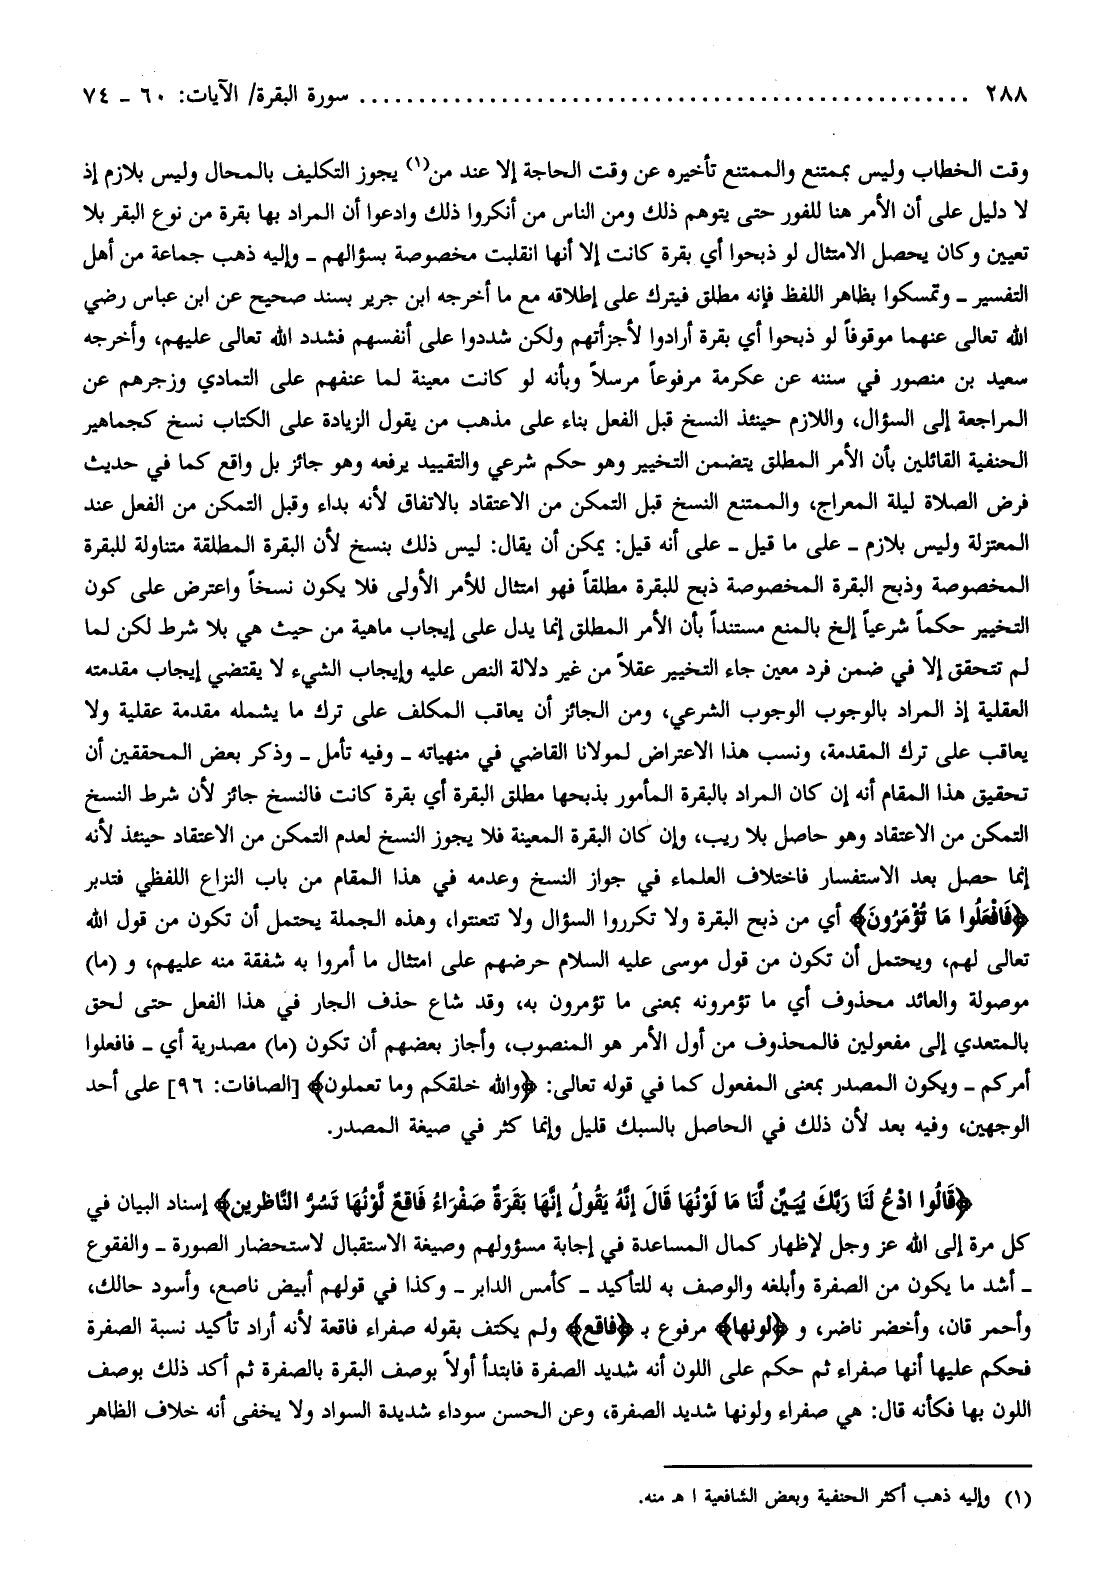 ٢٨٨ ........................................................ سورة البقرة/ الآيات: ٦٠ ـ ٧٤
وقت الخطاب وليس بممتنع والممتنع تأخيره عن وقت الحاجة إلا عند من(١) يجوز التكليف بالمحال وليس بلازم إذ
لا دليل على أن الأمر هنا للفور حتى يتوهم ذلك ومن الناس من أنكروا ذلك وادعوا أن المراد بها بقرة من نوع البقر بلا
تعيين وكان يحصل الامتثال لو ذبحوا أي بقرة كانت إلا أنها انقلبت مخصوصة بسؤالهم ـ وإليه ذهب جماعة من أهل
التفسير ـ وتمسكوا بظاهر اللفظ فإنه مطلق فيترك على إطلاقه مع ما أخرجه ابن جرير بسند صحيح عن ابن عباس رضي
الله تعالى عنهما موقوفاً لو ذبحوا أي بقرة أرادوا لأجزأتهم ولكن شددوا على أنفسهم فشدد الله تعالى عليهم، وأخرجه
سعيد بن منصور في سننه عن عكرمة مرفوعاً مرسلاً وبأنه لو كانت معينة لما عنفهم على التمادي وزجرهم عن
المراجعة إلى السؤال، واللازم حينئذ النسخ قبل الفعل بناء على مذهب من يقول الزيادة على الكتاب نسخ كجماهير
الحنفية القائلين بأن الأمر المطلق يتضمن التخيير وهو حكم شرعي والتقييد يرفعه وهو جائز بل واقع كما في حديث
فرض الصلاة ليلة المعراج، والممتنع النسخ قبل التمكن من الاعتقاد بالاتفاق لأنه بداء وقبل التمكن من الفعل عند
المعتزلة وليس بلازم ـ على ما قيل ـ على أنه قيل: يمكن أن يقال: ليس ذلك بنسخ لأن البقرة المطلقة متناولة للبقرة
المخصوصة وذبح البقرة المخصوصة ذبح للبقرة مطلقاً فهو امتثال للأمر الأولى فلا يكون نسخاً واعترض على كون
التخيير حكماً شرعياً إلخ بالمنع مستنداً بأن الأمر المطلق إنما يدل على إيجاب ماهية من حيث هي بلا شرط لكن لما
لم تتحقق إلا في ضمن فرد معين جاء التخيير عقلاً من غير دلالة النص عليه وإيجاب الشيء لا يقتضي إيجاب مقدمته
العقلية إذ المراد بالوجوب الوجوب الشرعي، ومن الجائز أن يعاقب المكلف على ترك ما يشمله مقدمة عقلية ولا
يعاقب على ترك المقدمة، ونسب هذا الاعتراض لمولانا القاضي في منهياته ـ وفيه تأمل ـ وذكر بعض المحققين أن
تحقيق هذا المقام أنه إن كان المراد بالبقرة المأمور بذبحها مطلق البقرة أي بقرة كانت فالنسخ جائز لأن شرط النسخ
التمكن من الاعتقاد وهو حاصل بلا ريب، وإن كان البقرة المعينة فلا يجوز النسخ لعدم التمكن من الاعتقاد حينئذ لأنه
إنما حصل بعد الاستفسار فاختلاف العلماء في جواز النسخ وعدمه في هذا المقام من باب النزاع اللفظي فتدبر
﴿فَافْعَلُوا مَا تُؤْمَرُونَ﴾ أي من ذبح البقرة ولا تكرروا السؤال ولا تتعنتوا، وهذه الجملة يحتمل أن تكون من قول الله
تعالى لهم، ويحتمل أن تكون من قول موسى عليه السلام حرضهم على امتثال ما أمروا به شفقة منه عليهم، و (ما)
موصولة والعائد محذوف أي ما تؤمرونه بمعنى ما تؤمرون به، وقد شاع حذف الجار في هذا الفعل حتى لحق
بالمتعدي إلى مفعولين فالمحذوف من أول الأمر هو المنصوب، وأجاز بعضهم أن تكون (ما) مصدرية أي ـ فافعلوا
أمركم ـ ويكون المصدر بمعنى المفعول كما في قوله تعالى: ﴿والله خلقكم وما تعملون﴾ [الصافات: ٩٦] على أحد
الوجهين، وفيه بعد لأن ذلك في الحاصل بالسبك قليل وإنما كثر في صيغة المصدر.
﴿قَالُوا ادْعُ لَنَا رَبَّكَ يُبَيِّن لَّنَا مَا لَوْنُهَا قَالَ إِنَّهُ يَقُولُ إِنَّهَا بَقَرَةٌ صَفْرَاءُ فَاقِعٌ لَّوْنُهَا تَسُرُّ النَّاظِرِين﴾ إسناد البيان في
كل مرة إلى الله عز وجل لإظهار كمال المساعدة في إجابة مسؤولهم وصيغة الاستقبال لاستحضار الصورة ـ والفقوع
ـ أشد ما يكون من الصفرة وأبلغه والوصف به للتأكيد ـ كأمس الدابر ـ وكذا في قولهم أبيض ناصع، وأسود حالك،
وأحمر قان، وأخضر ناضر، و ﴿لونها﴾ مرفوع بـ ﴿فاقع﴾ ولم يكتف بقوله صفراء فاقعة لأنه أراد تأكيد نسبة الصفرة
فحكم عليها أنها صفراء ثم حكم على اللون أنه شديد الصفرة فابتدأ أولاً بوصف البقرة بالصفرة ثم أكد ذلك بوصف
اللون بها فكأنه قال: هي صفراء ولونها شديد الصفرة، وعن الحسن سوداء شديدة السواد ولا يخفى أنه خلاف الظاهر
(١) وإليه ذهب أكثر الحنفية وبعض الشافعية ا هـ منه.